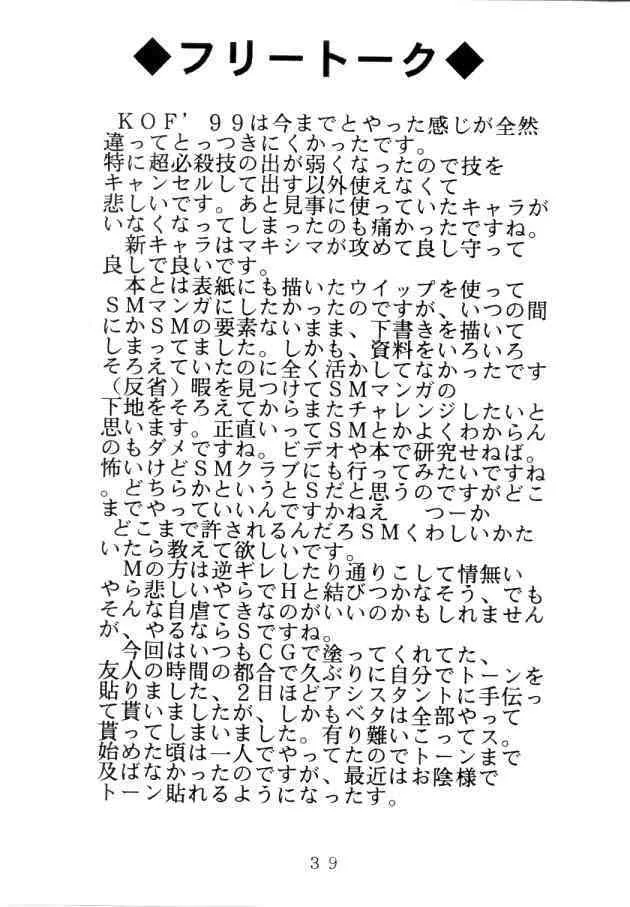 ◆フリートーク◆
ＫＯＦ’９９は今までとやった感じが全然
違ってとっつきにくかったです。
特に超必殺技の出が弱くなったので技を
キャンセルして出す以外使えなくて
悲しいです。あと見事に使っていたキャラが
いなくなってしまったのも痛かったですね。
新キャラはマキシマが攻めて良し守って
良しで良いです。
本とは表紙にも描いたウイップを使って
ＳＭマンガにしたかったのですが、いつの間
にかＳＭの要素ないまま、下書きを描いて
しまってました。しかも、資料をいろいろ
そろえていたのに全く活かしてなかったです
（反省）暇を見つけてＳＭマンガの
下地をそろえてからまたチャレンジしたいと
思います。正直いってＳＭとかよくわからん
のもダメですね。ビデオや本で研究せねば。
怖いけどＳＭクラブにも行ってみたいですね
。どちらかというとＳだと思うのですがどこ
までやっていいんですかねえ　　つーか
どこまで許されるんだろＳＭくわしいかた
いたら教えて欲しいです。
Ｍの方は逆ギレしたり通りこして情無い
やら悲しいやらでＨと結びつかなそう、でも
そんな自虐てきなのがいいのかもしれません
が、やるならＳですね。
今回はいつもＣＧで塗ってくれてた、
友人の時間の都合で久ぶりに自分でトーンを
貼りました、２日ほどアシスタントに手伝っ
て貰いましたが、しかもベタは全部やって
貰ってしまいました。有り難いこってス。
始めた頃は一人でやってたのでトーンまで
及ばなかったのですが、最近はお陰様で
トーン貼れるようになったす。
３９